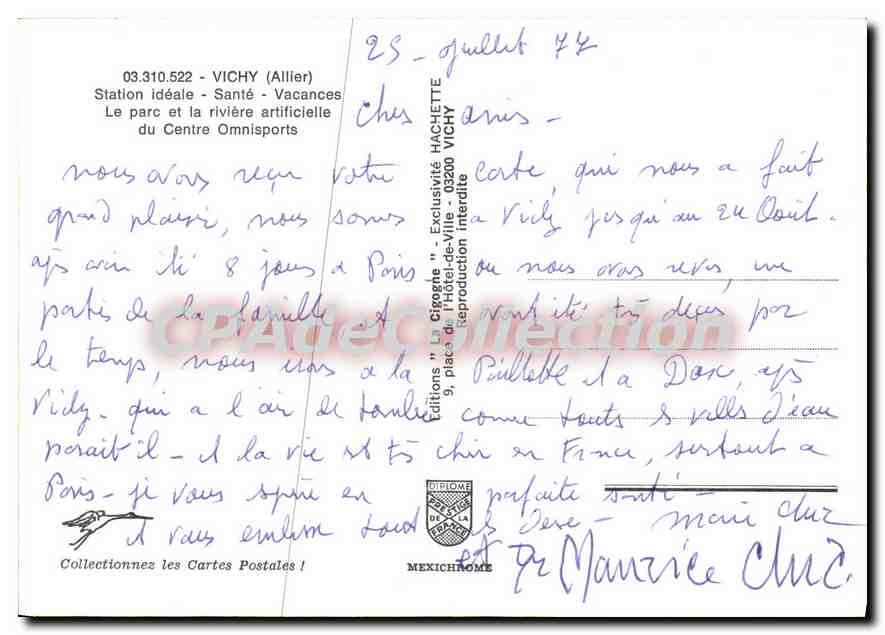 25 - Juillet 77
03.310.522 - VICHY (Allier)
Station idéale - Santé - Vacances
Le parc et la rivière artificielle
du Centre Omnisports
Chers amis -
nous avons reçu votre carte, qui nous a fait
grand plaisir, nous sommes a Vichy jusqu'au 24 Août.
après avoir été 8 jours a Paris ou nous avons revu, une
partie de la famille et avons été très déçus par
le temps, nous irons a la Paillotte et a Dax, après
Vichy - qui a l'air de tomber comme toutes les villes d'eau
parait'il - et la vie est très cher en France, surtout a
Paris - je vous espère en parfaite santé -
et vous embrasse tous les deux - Marie
et Dr Maurice
Editions " La Cigogne " - Exclusivité HACHETTE
9, place de l'Hôtel-de-Ville - 03200 VICHY
Reproduction interdite
DIPLOME
PRESTIGE
DE LA
FRANCE
MEXICHROME
Collectionnez les Cartes Postales !
CPAdeCollection